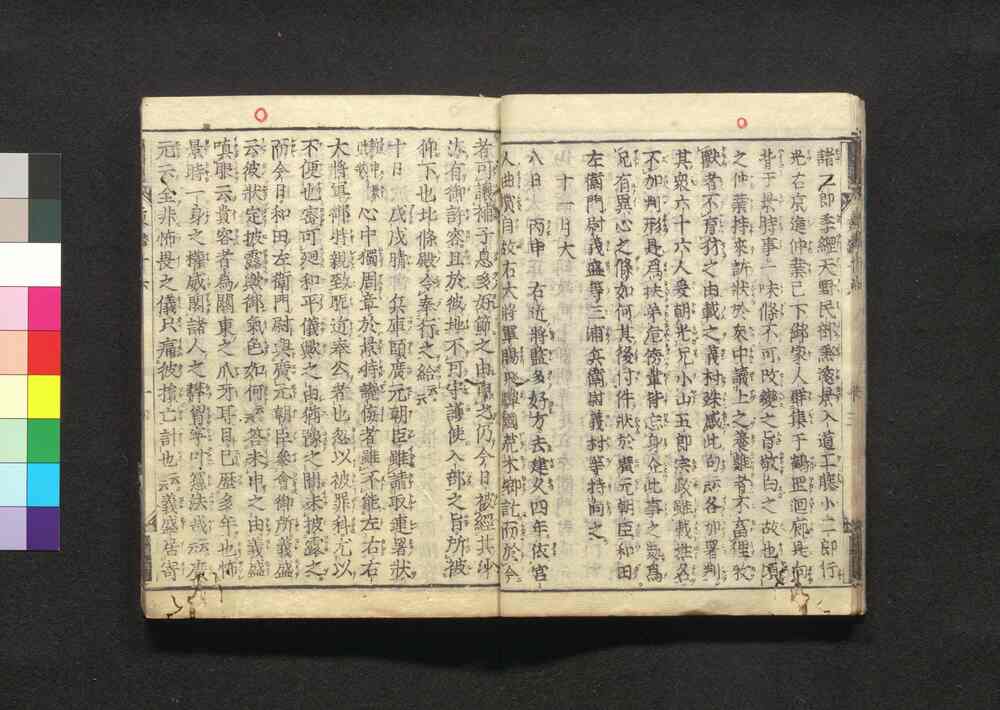 諸二郎季經天野民部丞遠景入道工藤小二郎行
光右京進仲業已下御家人群集于鶴岡廻廊是向
背于景時事一味條不可改變之旨敬白之故也頃
之仲業持來訴状於衆中讀上之養雞者不畜狸牧
獸者不育豺之由載之義村殊感此句云云各加署判
其衆六十六人爰朝光兄小山五郎宗政雖載姓名
不加判形是爲扶弟危傍輩皆忘身企此事之處爲
兄有異心之條如何其後付件状於廣元朝臣和田
左衛門尉義盛等三浦兵衛尉義村等持向之
十一月大
八日 丙申 右近將監多好方去建久四年依宮
人曲賞自故右大將軍賜飛驒國荒木郷訖而於今
者可讓補子息多好節之由申之仍今日被經其沙
汰有御許容且於彼地不可守護使入部之旨所被
仰下也比條殿令奉行之給云云
十日 戊戌晴 兵庫頭廣元朝臣雖請取連署状
心中獨周章於景時讒侫者雖不能左右右
大將軍御時親致昵近奉公者也忽以被罪科尤以
不便也密可廻和平儀歟之由猶豫之間未披露之
而今日和田左衛門尉與廣元朝臣參會御所義盛
云彼状定披露歟御氣色如何云云答未申之由義盛
嗔眼云貴客者爲關東之爪牙耳目已歴多年也怖
景時一身之權威閣諸人之欝胷寧叶憲法哉云云廣
元云全非怖畏之儀只痛彼損亡計也云云義盛居寄